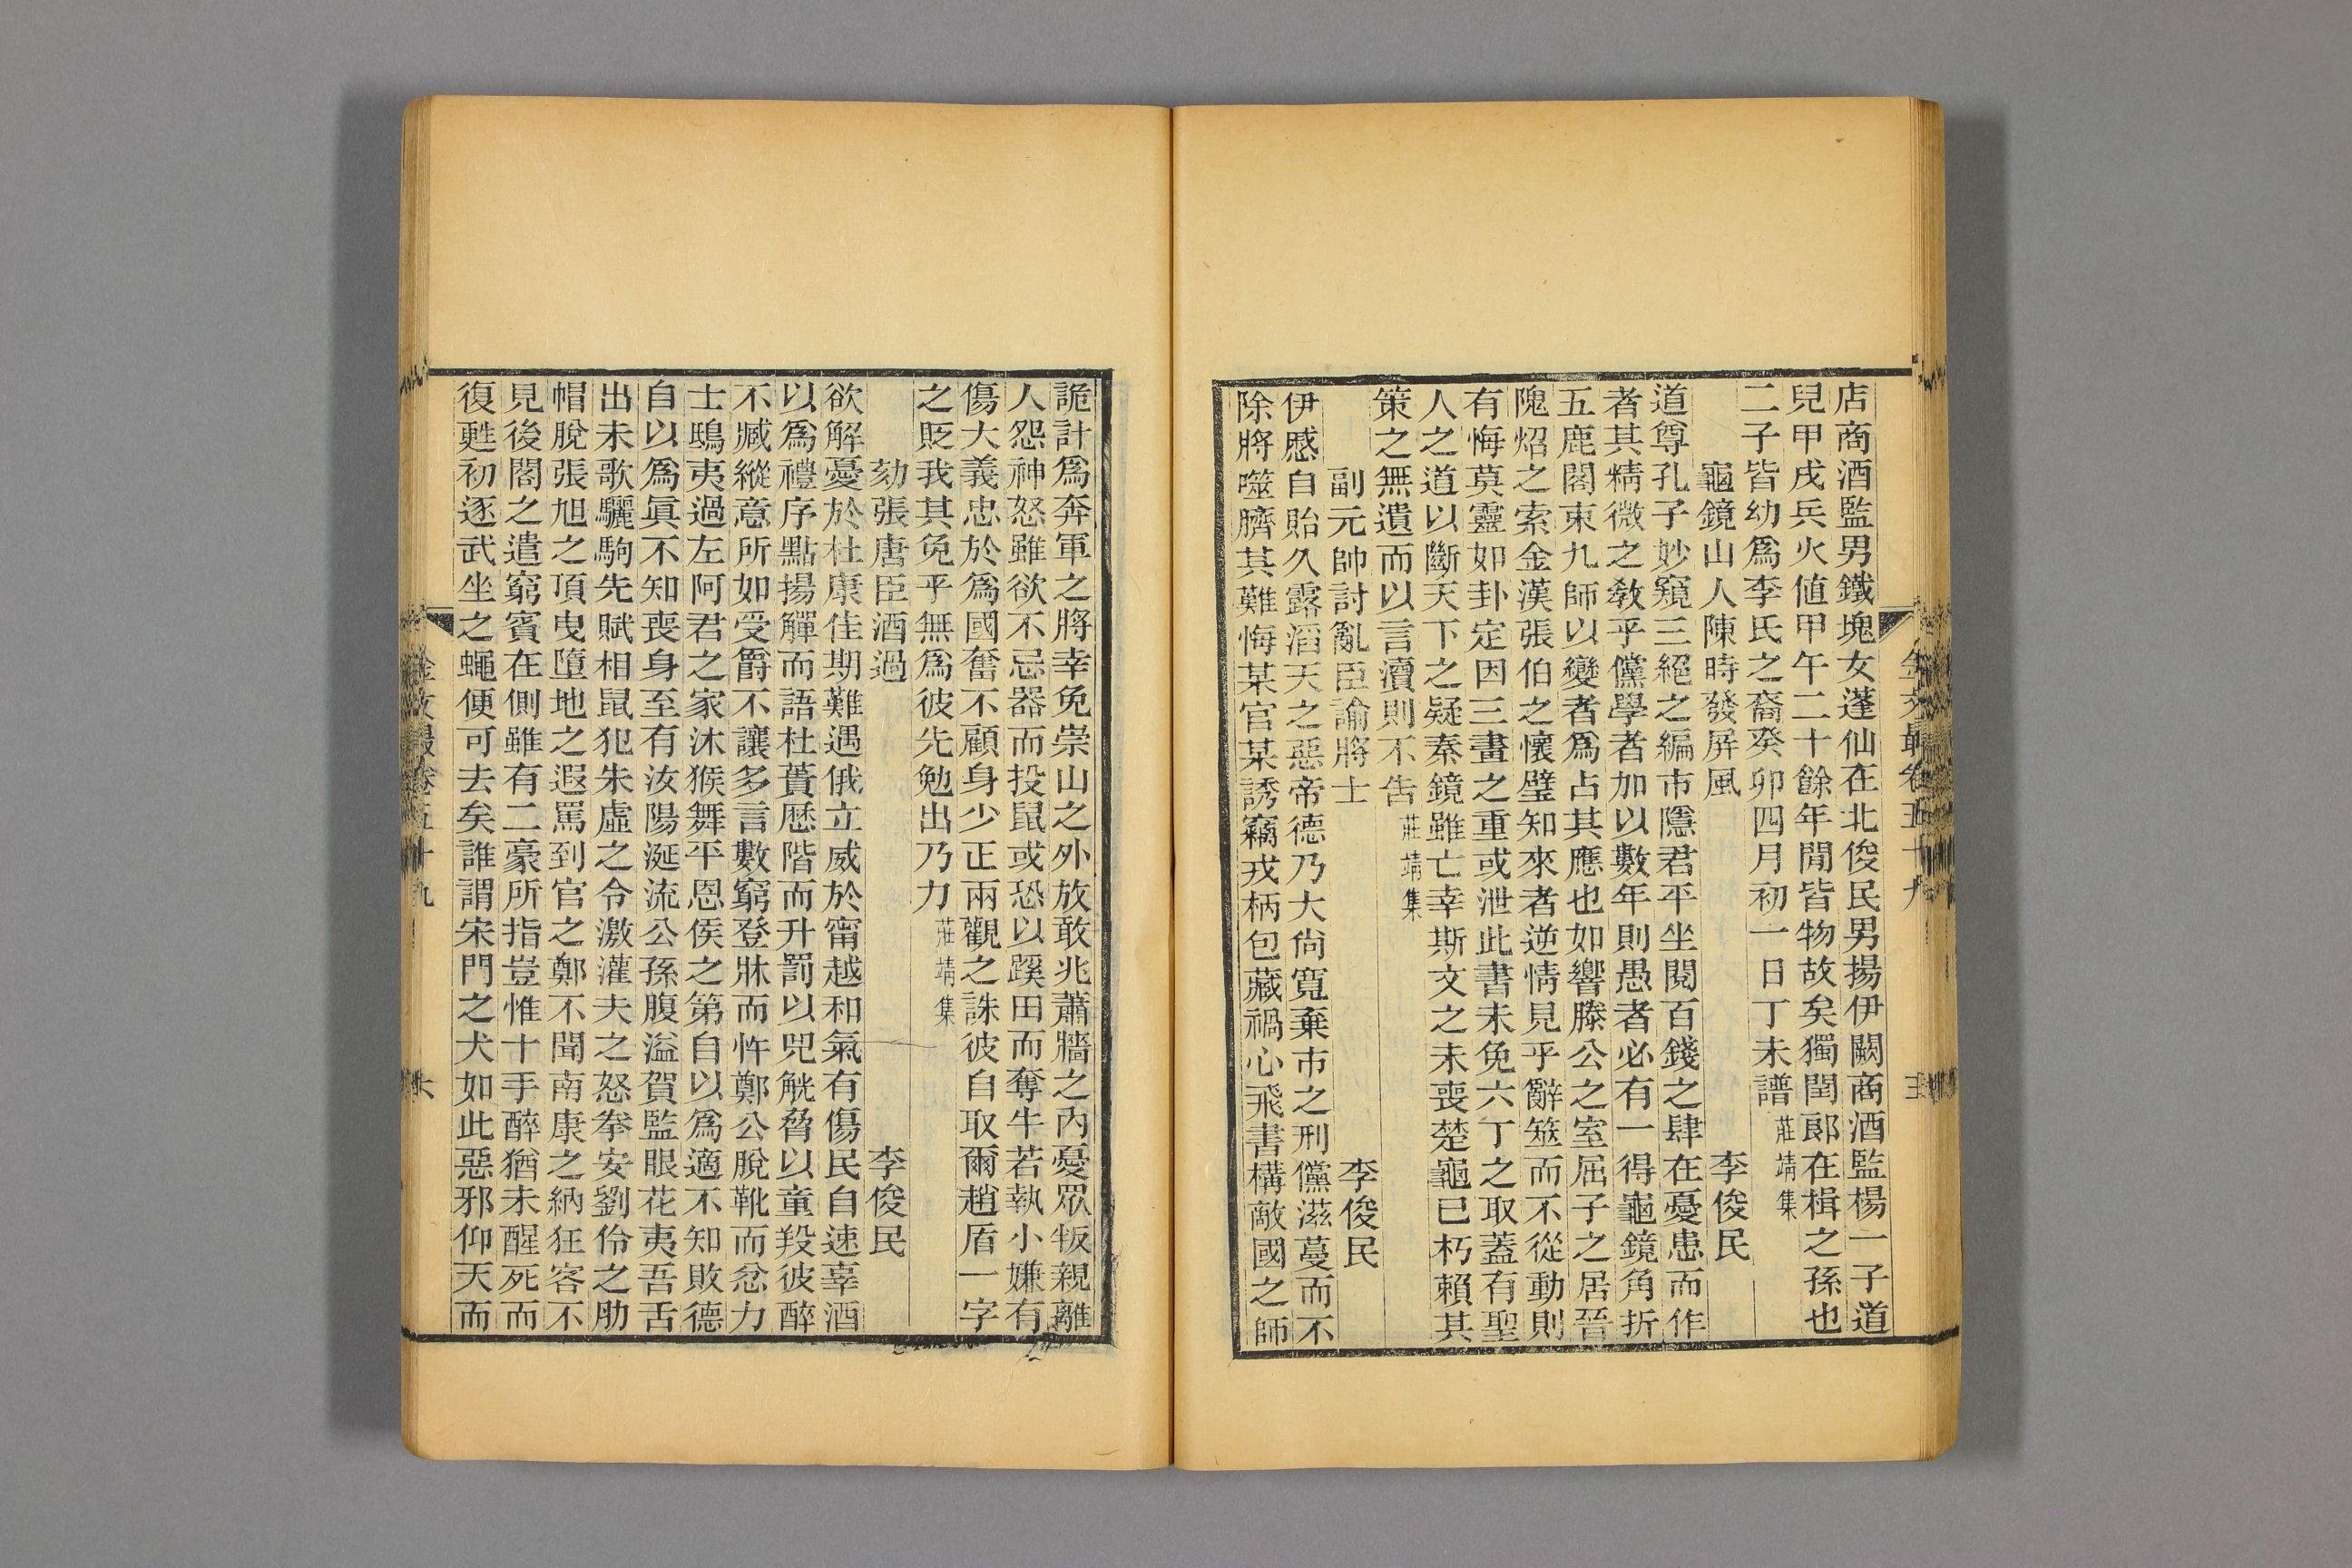 店商酒監男鐵塊女蓬仙在北俊民男揚伊闕商酒監楊一子道
兒甲戌兵火値甲午二十餘年閒皆物故矣獨閏郞在楫之孫也
二子皆幼爲李氏之裔癸卯四月初一日丁未譜莊靖集
龜鏡山人陳時發屏風 李俊民
道尊孔子妙窺三絕之編市隱君平坐閱百錢之肆在憂患而作
者其精微之敎乎儻學者加以數年則愚者必有一得龜鏡角折
五鹿閣束九師以變者爲占其應也如響滕公之室屈子之居晉
隗炤之索金漢張伯之懷璧知來者逆情見乎辭筮而不從動則
有悔莫靈如卦定因三畫之重或泄此書未免六丁之取蓋有聖
人之道以斷天下之疑秦鏡雖亡幸斯文之未喪楚龜已朽賴其
策之無遺而以言瀆則不吿莊靖集
副元帥討亂臣諭將士 李俊民
伊慼自貽久露滔天之惡帝德乃大尙寬棄市之刑儻滋蔓而不
除將噬臍其難悔某官某誘竊戎柄包藏禍心飛書構敵國之師
金文最卷五十九
詭計爲奔軍之將幸免崇山之外放敢兆蕭牆之內憂眾叛親離
人怨神怒雖欲不忌器而投鼠或恐以蹊田而奪牛若執小嫌有
傷大義忠於爲國奮不顧身少正兩觀之誅彼自取爾趙盾一字
之貶我其免乎無爲彼先勉出乃力莊靖集
劾張唐臣酒過 李俊民
欲解憂於杜康佳期難遇俄立威於甯越和氣有傷民自速辜酒
以爲禮序點揚觶而語杜蕢歷階而升罰以兕觥脅以童羖彼醉
不臧縱意所如受爵不讓多言數窮登牀而忤鄭公脫靴而忿力
士鴟夷過左阿君之家沐猴舞平恩侯之第自以爲適不知敗德
自以爲眞不知喪身至有汝陽涎流公孫腹溢賀監眼花夷吾舌
出未歌驪駒先賦相鼠犯朱虛之令激灌夫之怒拳安劉伶之肋
帽脫張旭之頂曳墮地之遐罵到官之鄭不聞南康之納狂客不
見後閤之遣窮賓在側雖有二豪所指豈惟十手醉猶未醒死而
復甦初逐武坐之蠅便可去矣誰謂宋門之犬如此惡邪仰天而
金文最卷五十九